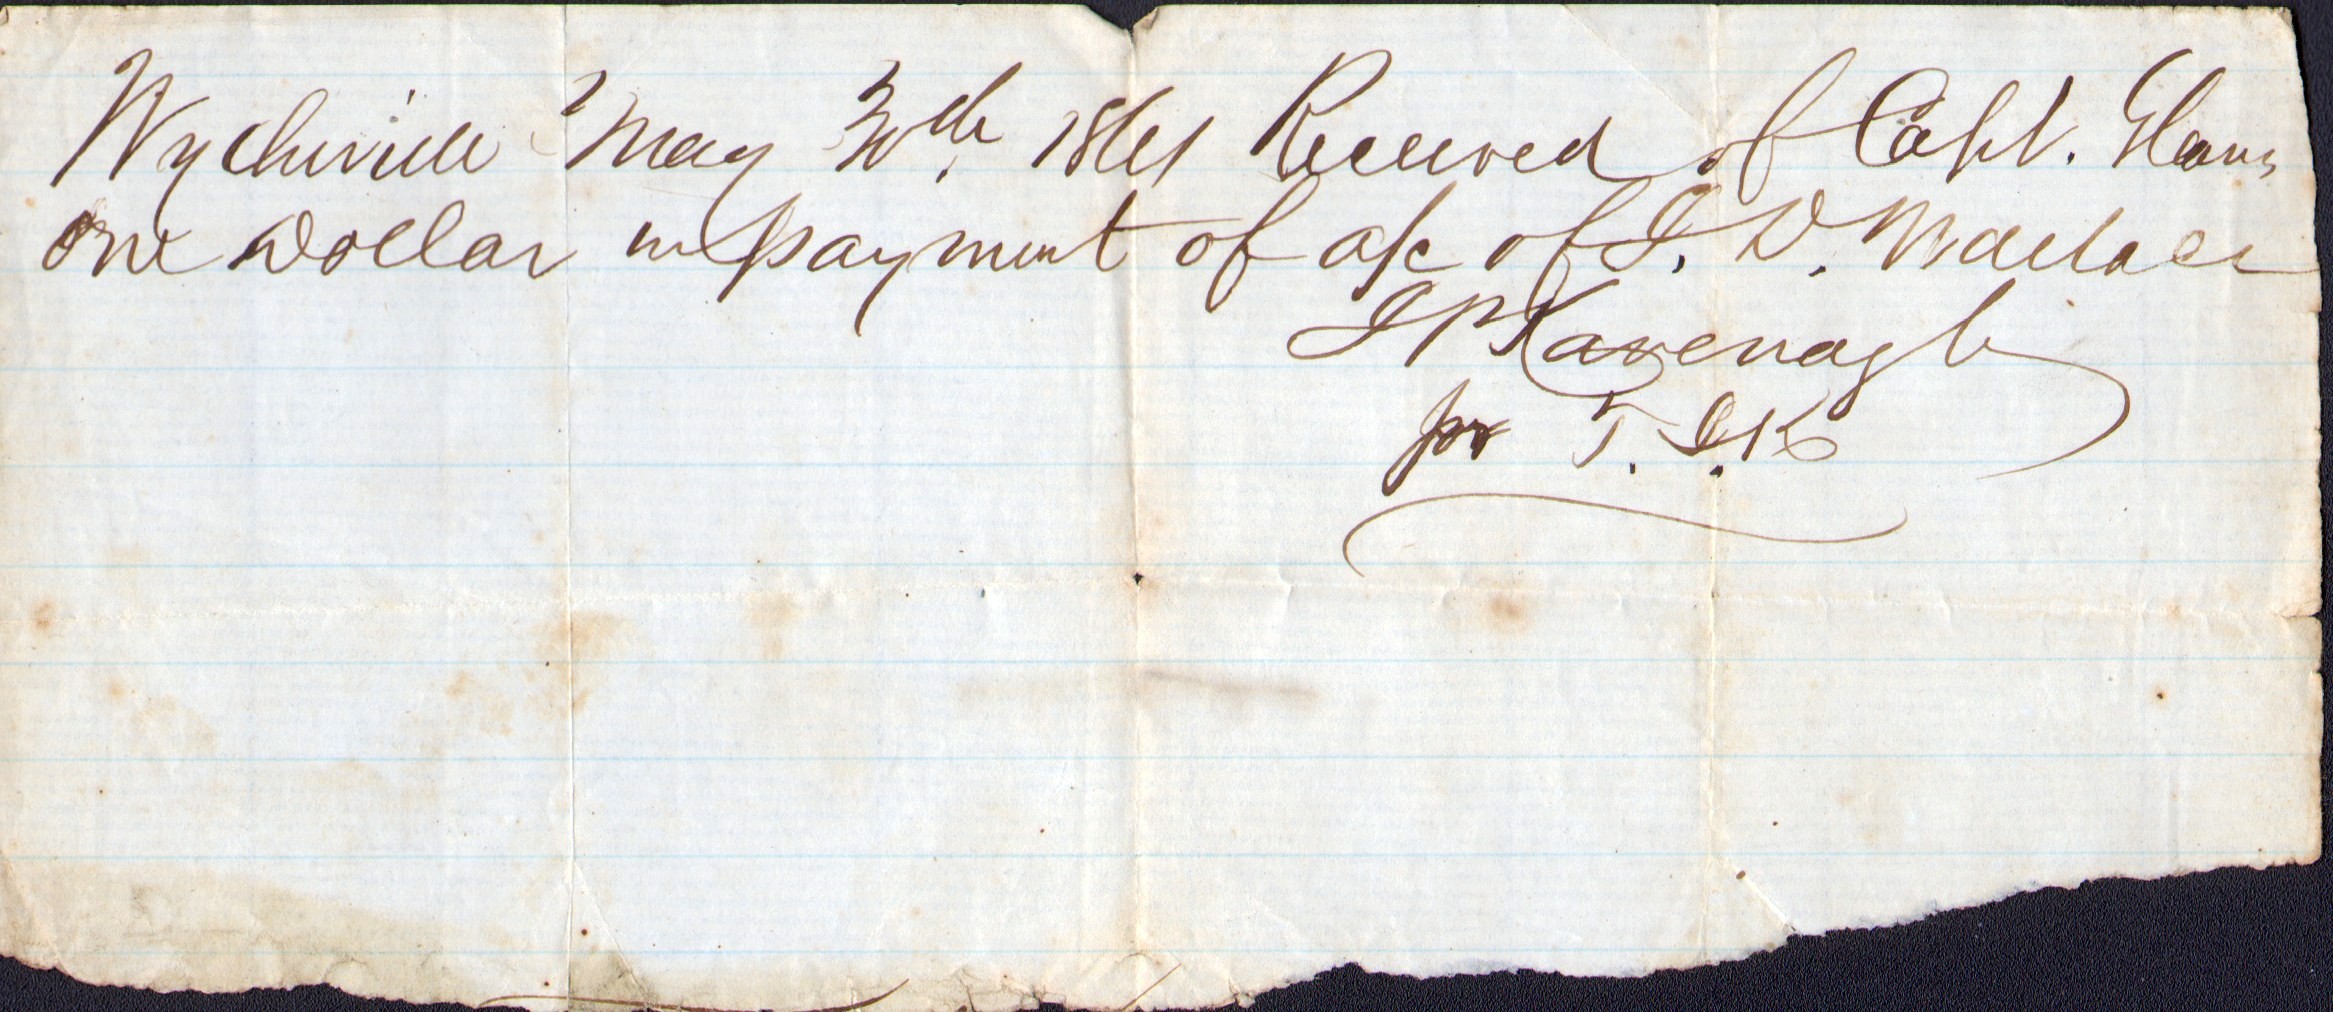 Wycheville May 30th, 1861 Received of Capt.
one Dollar in payment of a/c of J. D. Wallace
J P Kavenagh
per T. J. K